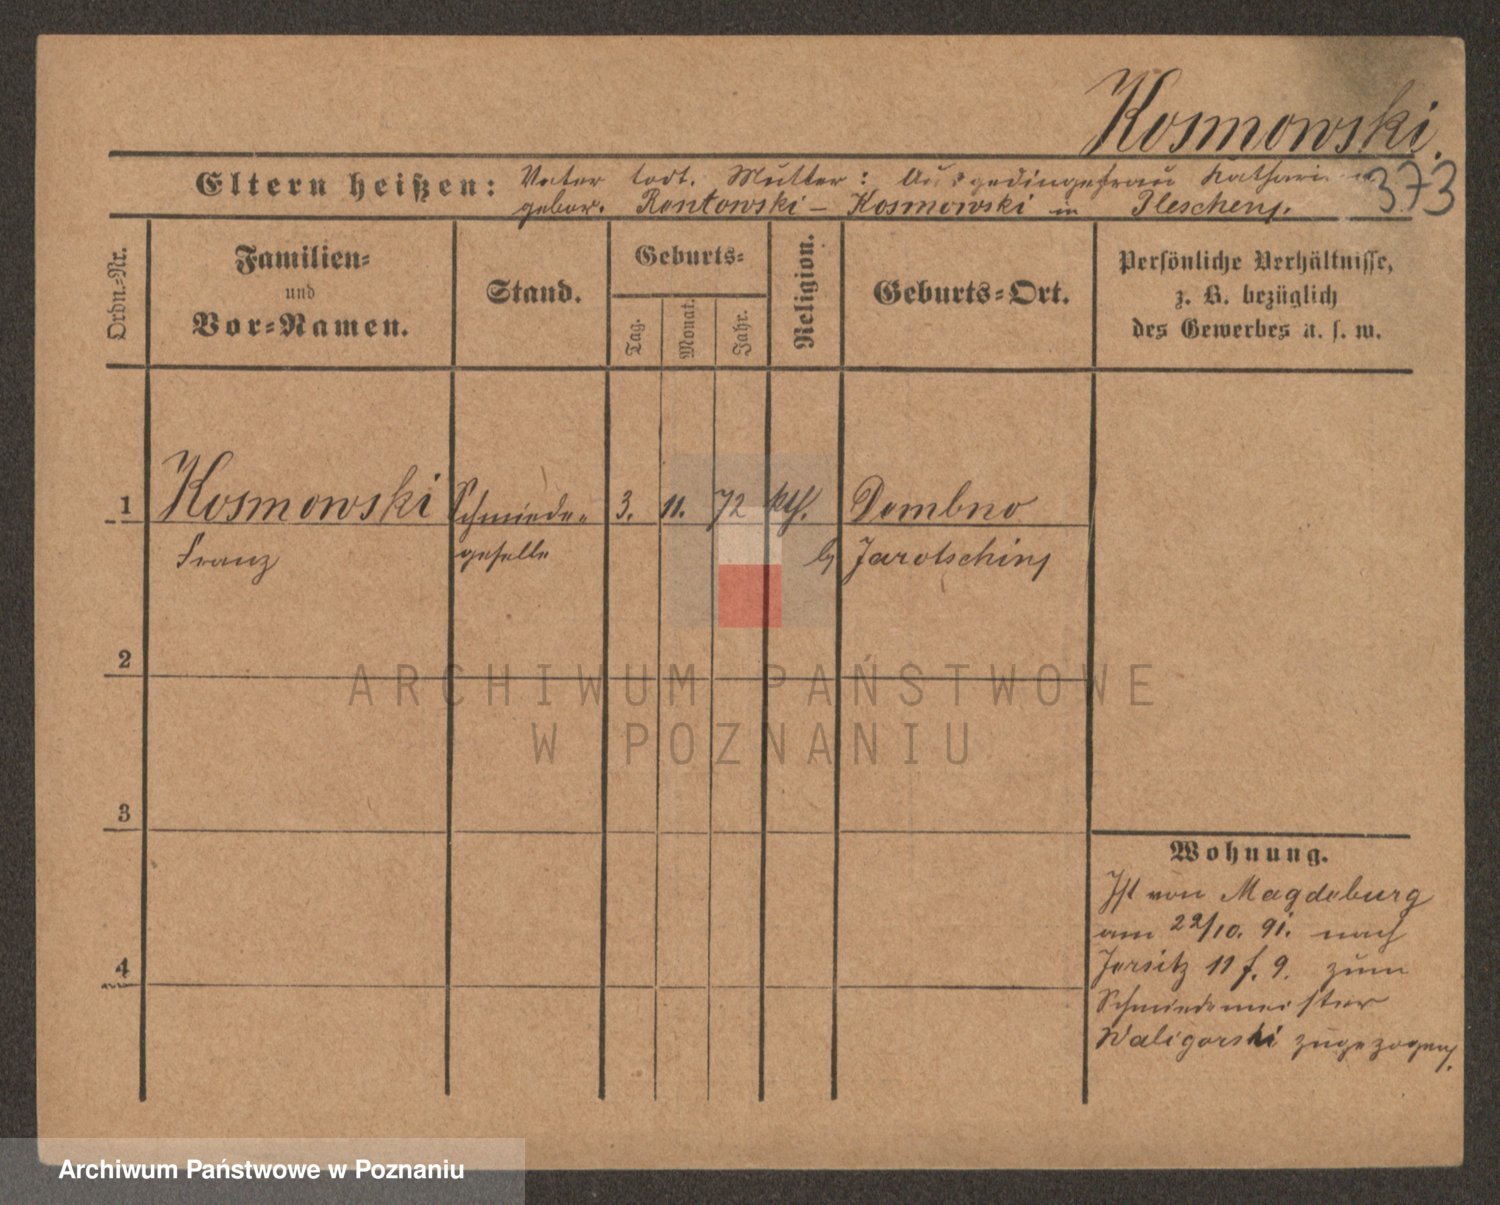 Kosmowski.
373
Eltern heißen: Vater todt. Mutter: Ausgedingefrau Katharina
gebor. Rontowski - Kosmowski in Pleschen.
Ordn.-Nr.
Familien-
und
Vor-Namen.
Stand.
Geburts-
Tag.
Monat.
Jahr.
Religion.
Geburts-Ort.
Persönliche Verhältnisse,
z. B. bezüglich
des Gewerbes u. s. w.
1 Kosmowski Schmiede- 3. 11. 72 kth. Dembno
Franz geselle b/ Jarotschin
2
ARCHIWUM PAŃSTWOWE
W POZNANIU
3
Wohnung.
Ist von Magdeburg
am 22/10. 91. nach
4
Jersitz 11 f. 9. zum
Schmiedemeister
Waligorski zugezogen.
Archiwum Państwowe w Poznaniu